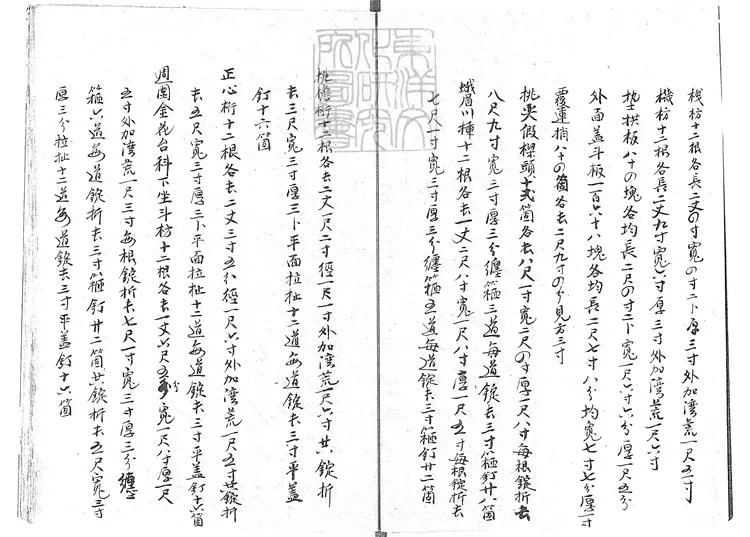 栈枋十二根各長二丈の寸寬の寸二卜厚三寸外加湾荒一尺五寸
機枋十二根各長二丈九寸寬六寸厚三寸外加湾荒一尺六寸
垫拱板八十の塊各均長二尺の寸二卜寬一尺六寸六分厚一尺五分
外面盖斗板一百六十八塊各均長二尺七寸八分均寬七寸七分厚二寸
覆蓮梢八十の箇各長二尺九寸の分見方三寸
挑尖假樑頭十弍箇各長八尺一寸寬二尺の寸厚一尺八寸每根錠折長
八尺九寸寬三寸厚三分纏箍三道每道錠長三寸箍釘廿六箇
蛾眉川揷十二根各長一丈二尺八寸寬一尺八寸厚一尺五寸每根錠折長
七尺一寸寬三寸厚三分纏箍五道每道錠長三寸箍釘廿二箇
挑檐桁十二根各長二丈一尺二寸徑一尺一寸外加湾荒一尺六寸廿六錠折
長三尺寬三寸厚三卜平面拉扯十二道每道錠長三寸平盖
釘十六箇
正心桁十二根各長二丈三寸五分徑一尺六寸外加湾荒一尺五寸廿錠折
長五尺寬三寸厚三卜平面拉扯十二道每道錠長三寸平盖釘十六箇
週圍金花台科下坐斗枋十二根各長一丈六尺五分寬一尺八寸厚一尺
五寸外加湾荒一尺三寸每根錠折長七尺一寸寬三寸厚三分纏
箍六道每道錠折長三寸箍釘廿二箇廿錠折長五尺寬三寸
厚三分拉扯十二道每道錠長三寸平盖釘十六箇